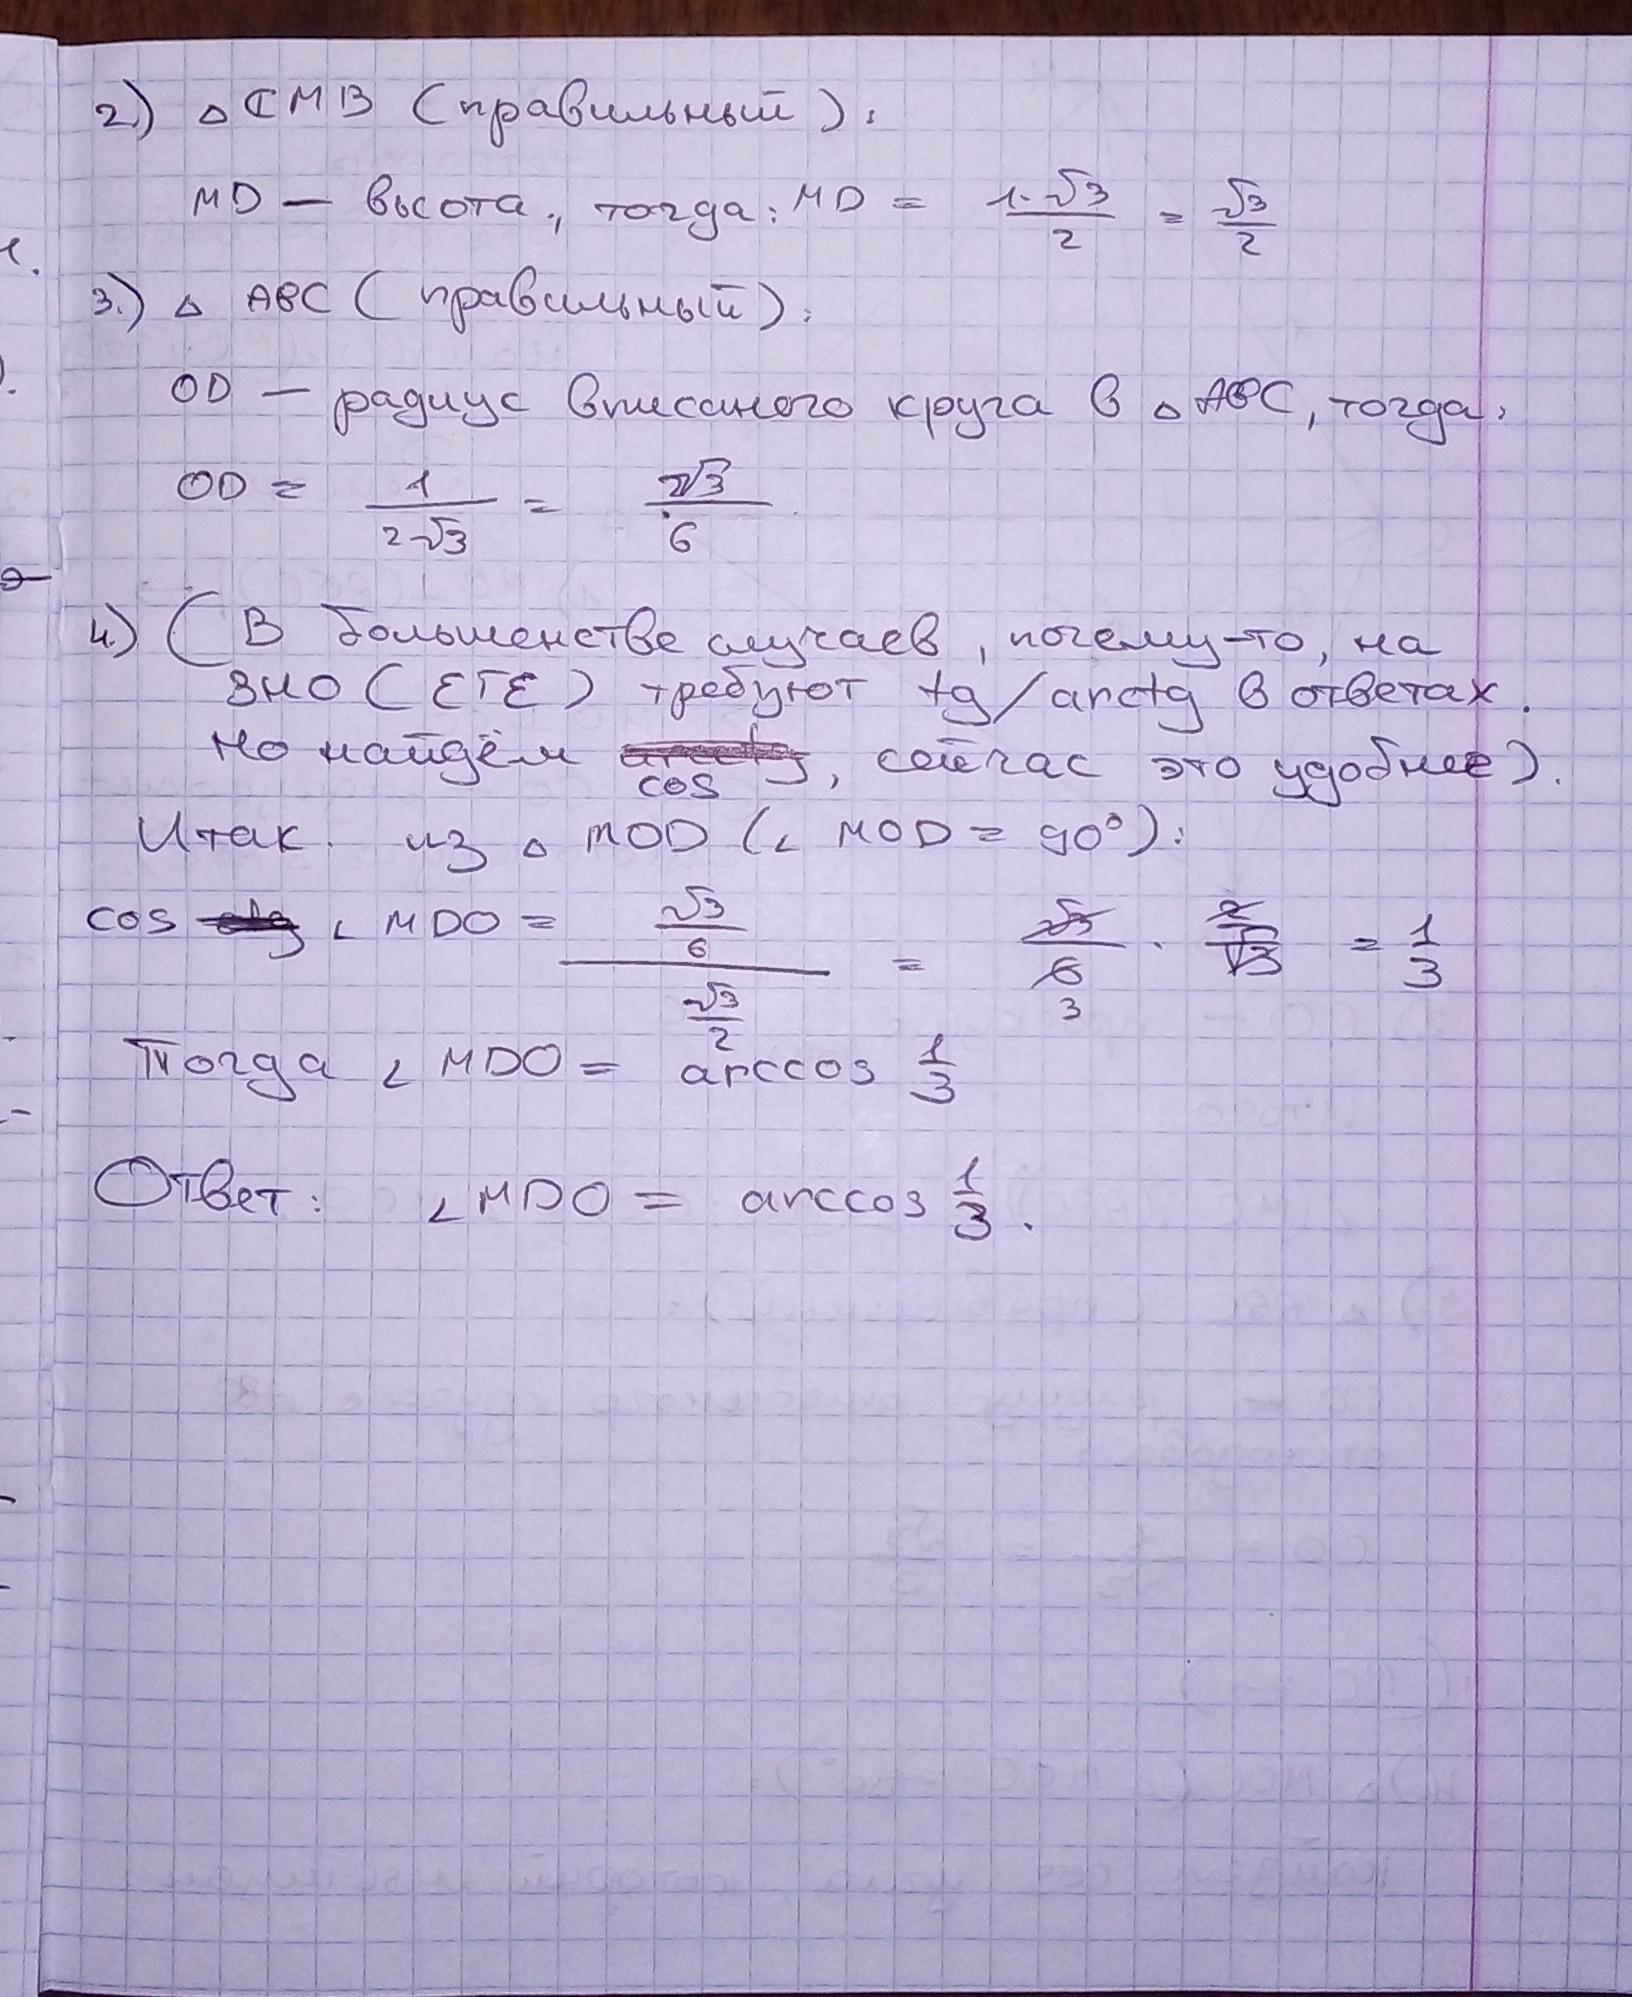 2.) △ CMB (правильный):
MD — высота, тогда: MD = (1·√3)/2 = √3/2
3.) △ ABC (правильный):
OD — радиус вписаного круга в △ ABC, тогда:
OD = 1/(2√3) = √3/6
4.) (В большенстве случаев, почему-то, на
ЗНО (ЕГЕ) требуют tg/arctg в ответах.
Но найдём cos, сейчас это удобнее).
Итак. из △ MOD (∠ MOD = 90°):
cos ∠ MDO = (√3/6)/(√3/2) = √3/6 · 2/√3 = 1/3
Тогда ∠ MDO = arccos 1/3
Ответ: ∠ MDO = arccos 1/3.